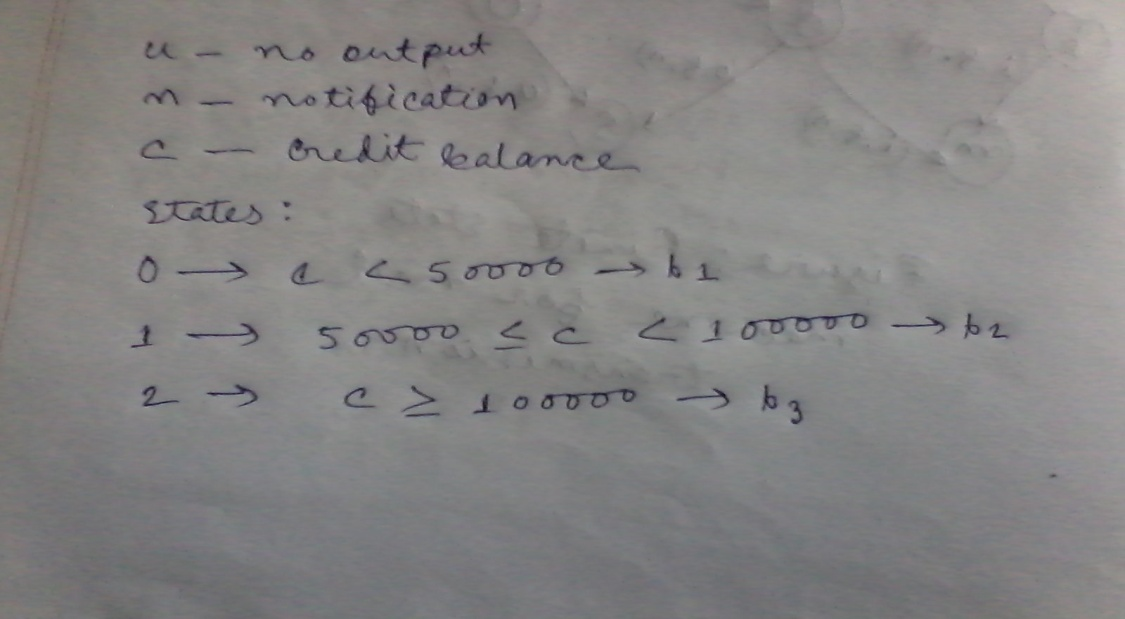 u - no output
n - notification
c - credit balance
States :
0 → c < 50000 → b1
1 → 50000 ≤ c < 100000 → b2
2 → c ≥ 100000 → b3